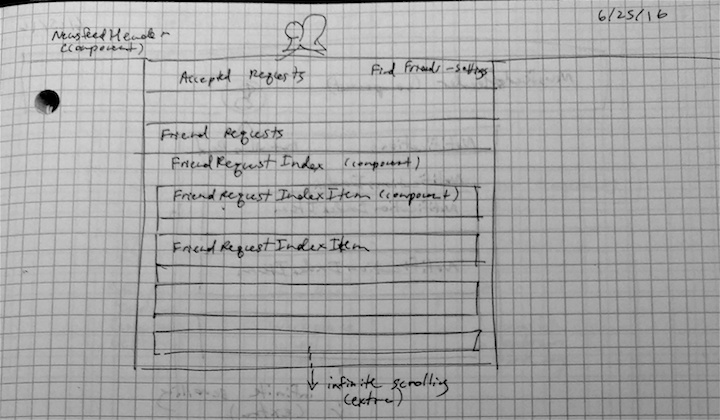 6/25/16
NewsfeedHeader
(component)
Accepted Requests
Find Friends - settings
Friend Requests
FriendRequestIndex (component)
FriendRequestIndexItem (component)
FriendRequestIndexItem
infinite scrolling
(extra)